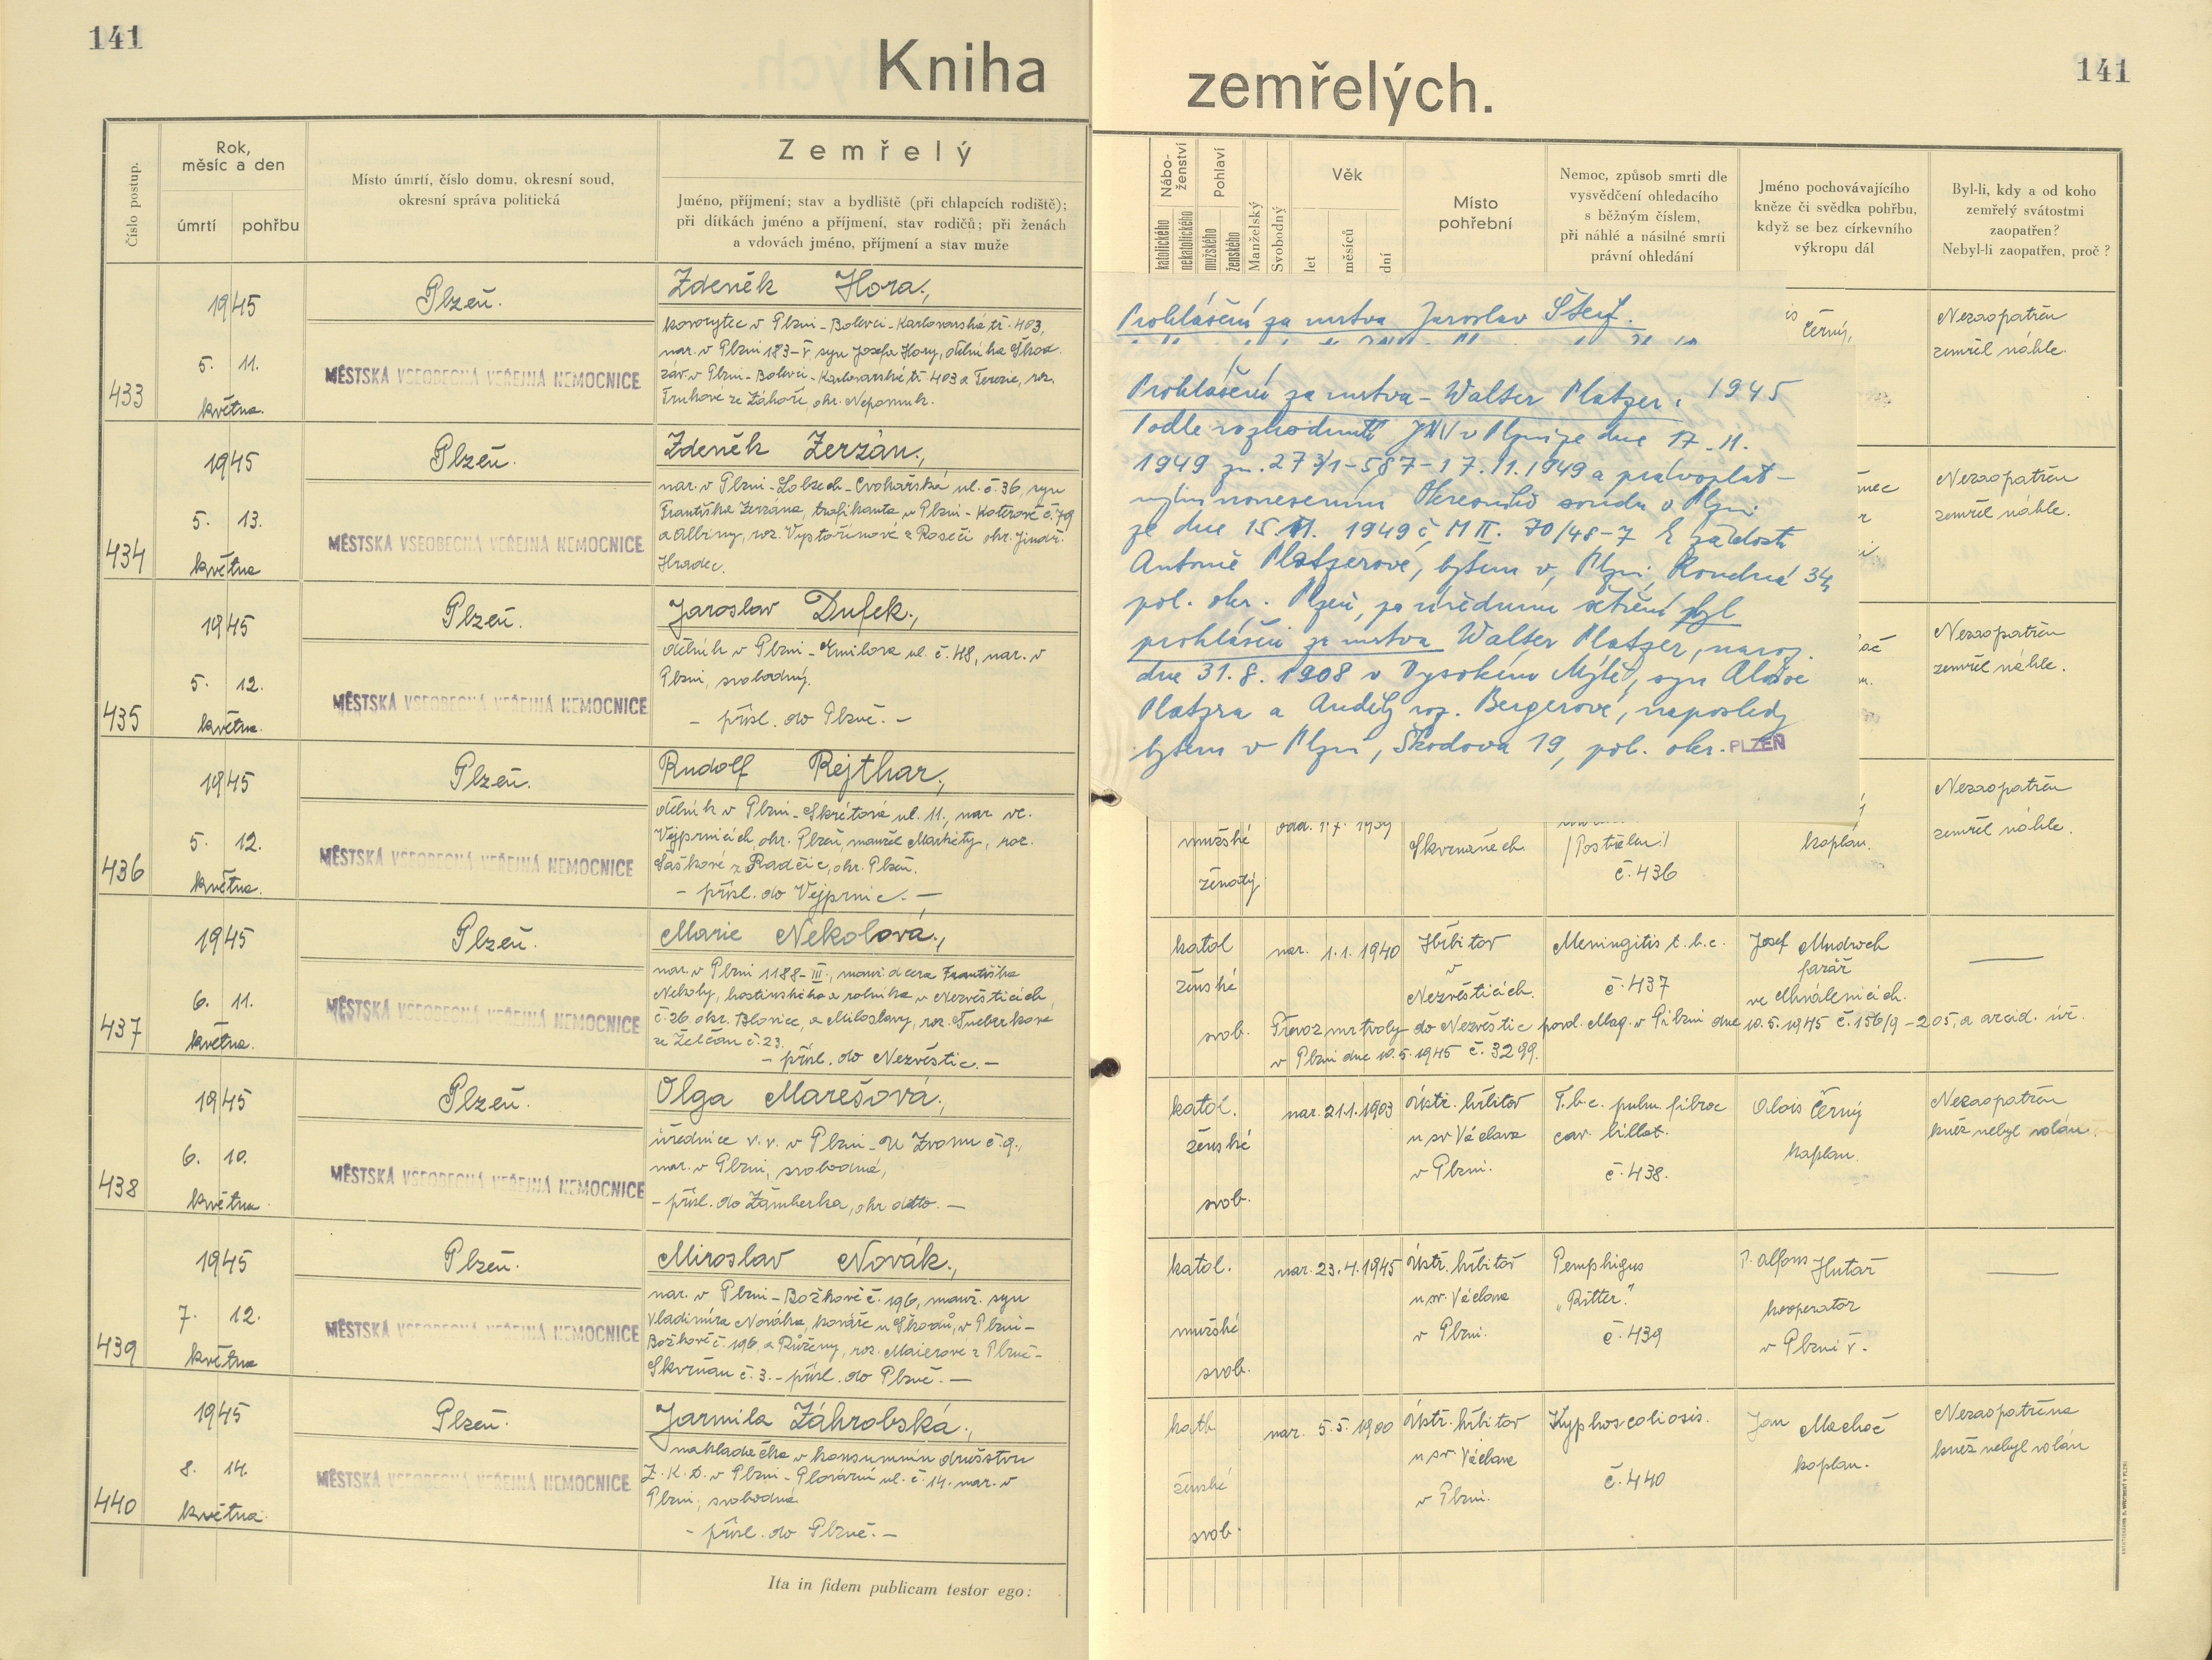 141
Kniha
Číslo postup.
Rok,
měsíc a den
úmrtí
pohřbu
Místo úmrtí, číslo domu, okresní soud,
okresní správa politická
Zemřelý
Jméno, příjmení; stav a bydliště (při chlapcích rodiště);
při dítkách jméno a příjmení, stav rodičů; při ženách
a vdovách jméno, příjmení a stav muže
433
1945
5. 11.
května.
Plzeň.
MĚSTSKÁ VŠEOBECNÁ VEŘEJNÁ NEMOCNICE
Zdeněk Hora.,
kovorytec v Plzni-Bolevci-Karlovarská tř. 403,
nar. v Plzni 183-V. syn Josefa Hory, dělníka Škod.
záv. v Plzni-Bolevci-Karlovarské tř. 403 a Terezie, roz.
ze Záhoří, okr. Nepomuk.
434
1945
5. 13.
května
Plzeň.
MĚSTSKÁ VŠEOBECNÁ VEŘEJNÁ NEMOCNICE
Zdeněk Zerzán.,
nar. v Plzni-Lobzech-Cvokařská ul. č. 36, syn
Františka Zerzána, trafikanta v Plzni-Koterově č. 79
a Albiny, roz. z Roseče okr. Jindř.
Hradec.
435
1945
5. 12.
května.
Plzeň.
MĚSTSKÁ VŠEOBECNÁ VEŘEJNÁ NEMOCNICE
Jaroslav Dufek.,
dělník v Plzni-Emilova ul. č. 48, nar. v
Plzni, svobodný.
- přísl. do Plzně. -
436
1945
5. 12.
května.
Plzeň.
MĚSTSKÁ VŠEOBECNÁ VEŘEJNÁ NEMOCNICE
Rudolf Rejthar.,
dělník v Plzni-Skrétova ul. 11., nar. ve
Vejprnicích, okr. Plzeň, manžel Markéty, roz.
Šaškové z Radčic, okr. Plzeň.
- přísl. do Vejprnic. -
437
1945
6. 11.
května.
Plzeň.
MĚSTSKÁ VŠEOBECNÁ VEŘEJNÁ NEMOCNICE
Marie Nekolová.,
nar. v Plzni 1188-III., manž. dcera Františka
Nekoly, hostinského a rolníka v Nezvěsticích,
č. 26 okr. Blovice, a Miloslavy, roz.
ze Želčan č. 23.
- přísl. do Nezvěstic. -
438
1945
6. 10.
května.
Plzeň.
MĚSTSKÁ VŠEOBECNÁ VEŘEJNÁ NEMOCNICE
Olga Marešová.,
úřednice v. v. v Plzni-U Zvonu č. 9.,
nar. v Plzni, svobodná,
- přísl. do Žamberka, okr. detto. -
439
1945
7. 12.
května
Plzeň.
MĚSTSKÁ VŠEOBECNÁ VEŘEJNÁ NEMOCNICE
Miroslav Novák.,
nar. v Plzni-Božkově č. 196, manž. syn
Vladimíra Nováka, kováře u Škodů, v Plzni-
Božkově č. 196, a Růženy, roz. Maierové z Plzně-
Skvrňan č. 3. - přísl. do Plzně. -
440
1945
8. 14.
května.
Plzeň.
MĚSTSKÁ VŠEOBECNÁ VEŘEJNÁ NEMOCNICE
Jarmila Záhrobská.,
nakladečka v konsumním družstvu
Z. K. D. v Plzni- ul. č. 14. nar. v
Plzni, svobodná
- přísl. do Plzně. -
Ita in fidem publicam testor ego:
141
zemřelých.
Nábo-
ženství
katolického
nekatolického
Pohlaví
mužského
ženského
Manželský
Svobodný
Věk
let
měsíců
dní
Místo
pohřební
Nemoc, způsob smrti dle
vysvědčení ohledacího
s běžným číslem,
při náhlé a násilné smrti
právní ohledání
Jméno pochovávajícího
kněze či svědka pohřbu,
když se bez církevního
výkropu dál
Byl-li, kdy a od koho
zemřelý svátostmi
zaopatřen?
Nebyl-li zaopatřen, proč?
Prohlášení za mrtva Jaroslav Šteif.
Prohlášení za mrtva - Walter Platzer. 1945
Podle rozhodnutí JNV v Plzni ze dne 17. 11.
1949 zn. 273/1-587-17.11.1949 a pravoplat-
ným usnesením Okresního soudu v Plzni
ze dne 15. VI. 1949 č. M II. 70/48-7 k žádosti
Antonie Platzerové, bytem v Plzni, Koudná 34,
pol. okr. Plzeň, po úředním šetření byl
prohlášen za mrtva Walter Platzer, naroz.
dne 31. 8. 1908 v Vysokém Mýtě, syn Aloise
Platzra a Anděly roz. Bergerové, naposledy
bytem v Plzni, Škodova 19, pol. okr. PLZEŇ
Černý,
Nezaopatřen
zemřel náhle.
Nezaopatřen
zemřel náhle.
Nezaopatřen
zemřel náhle.
mužské
ženatý
odd. 1.7. 1939
Skvrňanech
/Postřelen!/
č. 436
kaplan.
Nezaopatřen
zemřel náhle.
katol
ženské
svob.
nar. 1.1. 1940
Hřbitov
v
Nezvěsticích.
Meningitis t. b. c.
č. 437
Josef Mudroch
farář
ve Chválenicích.
Převoz mrtvoly do Nezvěstic povol. Mag. v Plzni dne 10. 5. 1945 č. 156/9-205, a arcid. úř.
v Plzni dne 10. 5. 1945 č. 3299.
katol.
ženské
svob.
nar. 21.1. 1903
Ústř. hřbitov
u sv. Václava
v Plzni.
T. b. c. pulm. fibroc
cav. billat.
č. 438.
Alois Černý
kaplan.
Nezaopatřena
kněz nebyl volán.
katol.
mužské
svob.
nar. 23. 4. 1945
Ústř. hřbitov
u sv. Václava
v Plzni.
Pemphigus
„Ritter."
č. 439
P. Alfons Hutař
kooperator
v Plzni V.
kath.
ženské
svob.
nar. 5. 5. 1900
Ústř. hřbitov
u sv. Václava
v Plzni.
Kyphoscoliosis.
č. 440
Jan Machač
kaplan.
Nezaopatřena
kněz nebyl volán